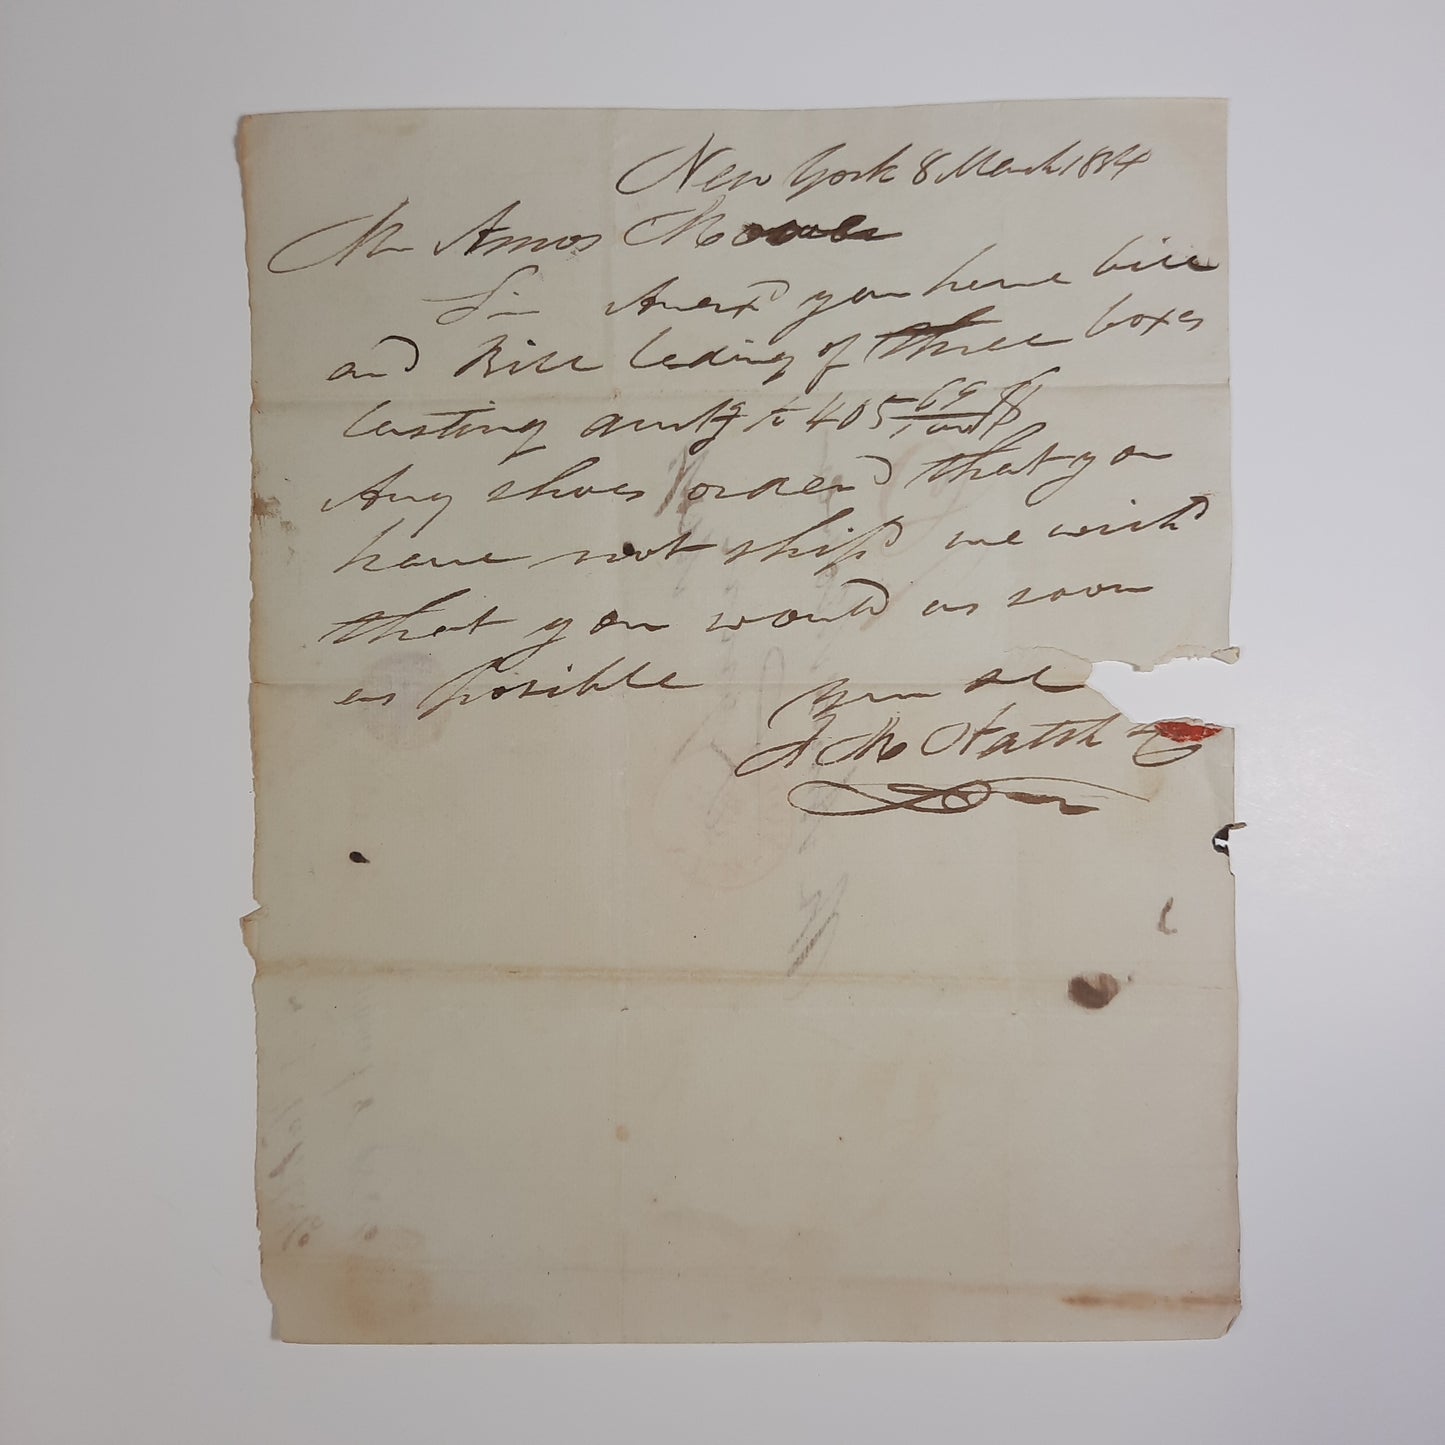 New York 8 March 1834
Mr Amos
Sir Anex'd you have bill
and Bill lading of three boxes
lasting amtg to 405 69/100 $
Any shoes order'd that you
have not ship'd we wish
that you would as soon
as posible
Your Ob
F M Hatch &